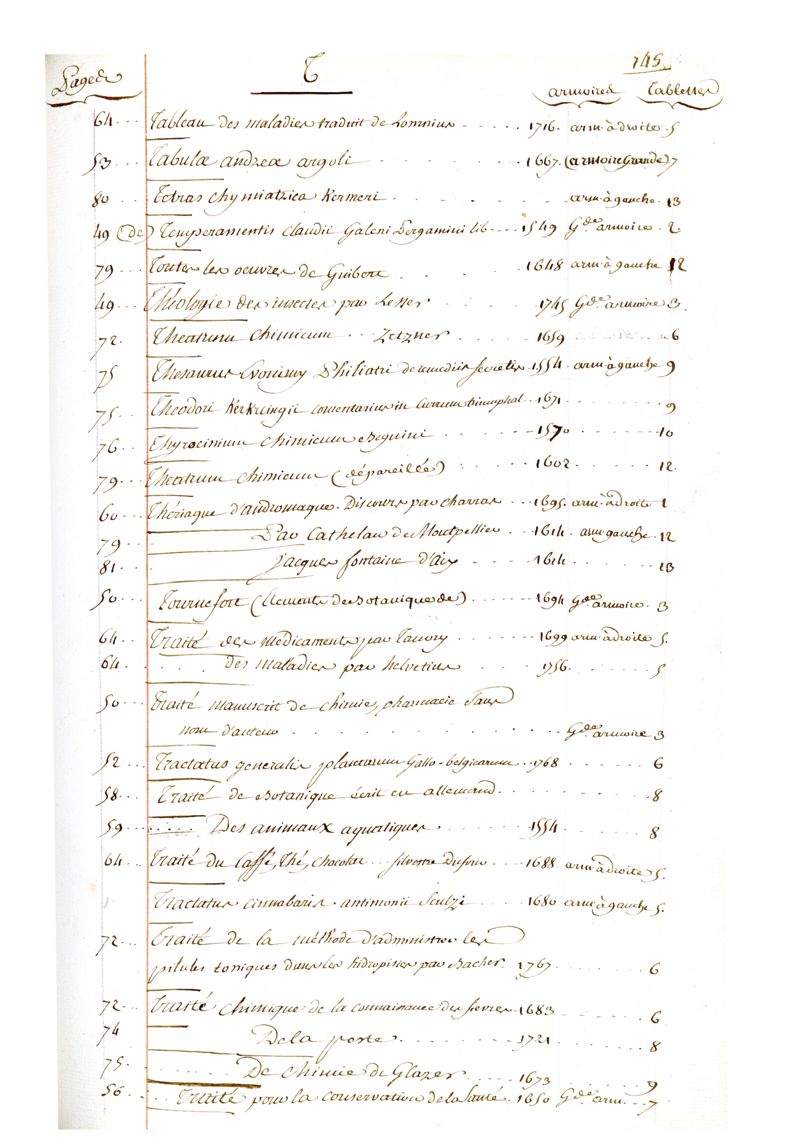 145.
Pages T armoires Tablettes
64... Tableau des maladies traduit de Lomnius ..... 1716. arm. à droite . 5
53... Tabulæ andreæ argoli ..... 1667. (armoire Grande) 7
80... Tetras chymiatrica Kermeri. arm. à gauche . 13
49 (de) Temperamentis claudii Galeni Pergamini lib... 1549 Gde armoire . 2
79... Toutes les oeuvres de Guibert ..... 1648 arm. à gauche 12
49... Théologie des insectes par Lesser .... 1745 Gde armoire . 3
72... Theatrum chimicum ... Zetzner .... 1659 ... 6
75 Thesaurus Evonimy Philiatri de remediis secretis . 1554. arm. à gauche 9
75... Theodori Kerkringii comentarius in Currum triumphal.. 1671 ..... 9
76... Thyrocinium chimicum Beguini ..... 1570 ..... 10
79... Theatrum chimicum (dépareillé) ..... 1602 ..... 12
60... Thériaque d'andromaque. Discours par charras ... 1695. arm. à droite 1
79... Par Cathelan de Montpellier ... 1614 arm. gauche. 12
81... Jacques fontaine d'aix ... 1614 ... 13
50... Tournefort (Elements de Botanique de) ..... 1694 Gde armoire . 3
64... Traité des médicaments par Tauvry ..... 1699 arm. à droite . 5.
64... ..... des maladies par helvetius .... 1756. .... 5
50... Traité manuscrit de chimie, pharmacie Sans
nom d'auteur ..... Gde armoire 3
52... Tractatus generalis plantarum Gallo-belgicarum .. 1768 ..... 6
58... Traité de Botanique écrit en allemand ..... 8
59... ..... Des animaux aquatiques ..... 1554 ..... 8
64... Traité du Caffé, Thé, chocolat ... silvestre Dufour ... 1688 arm. à droite . 5.
Tractatus cinnabaris . antimonii Sculzi ... 1680 arm. à gauche 5.
72... Traité de la méthode d'administrer les
pilules toniques dans les hidropisies par Bacher. 1767 ..... 6
72... Traité chimique de la connaissance des fievres . 1683 ..... 6
74 De la peste ..... 1721 ..... 8
75... De chimie de Glazer ..... 1673 ..... 9
56... Traité pour la conservation de la Santé . 1650 Gde arm.... 7